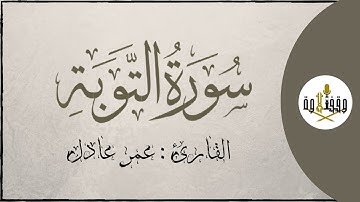 سُورَةُ التَّوبَةِ
القارئ : عمر عادل